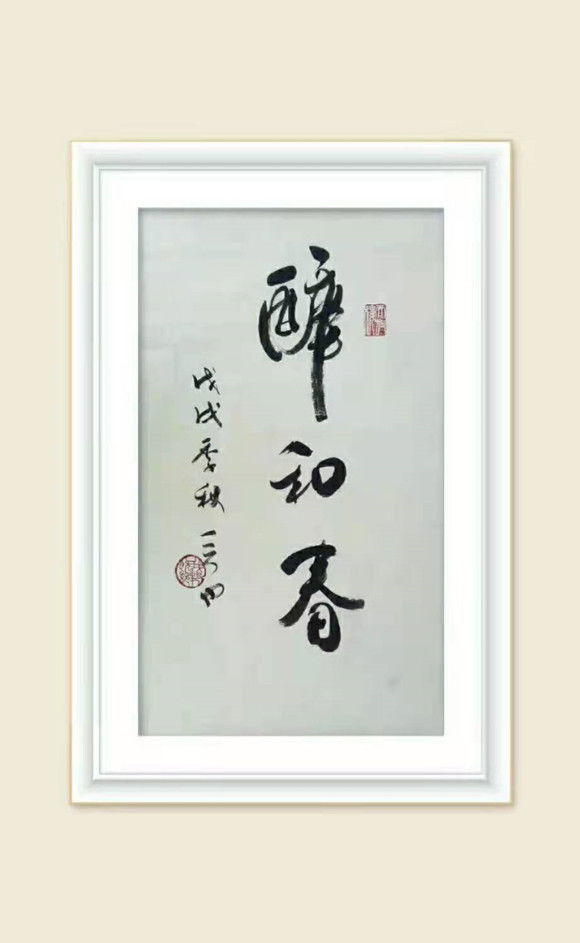 醉和春
戊戌季秋